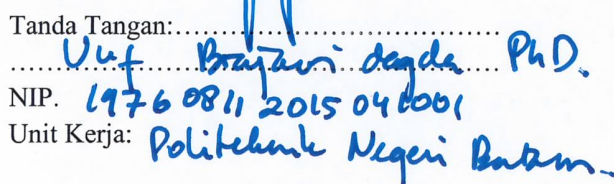 Tanda Tangan:
PhD.
NIP. 19760811 2015 04 1001
Unit Kerja: Politeknik Negeri Batam